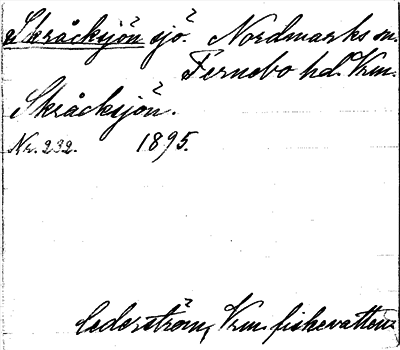 Skråcksjön sjö. Nordmarks sn.
Fernebo hd. Vrm.
Skråcksjön.
Nr. 232. 1895.
Cederström, Vrm. fiskevatten